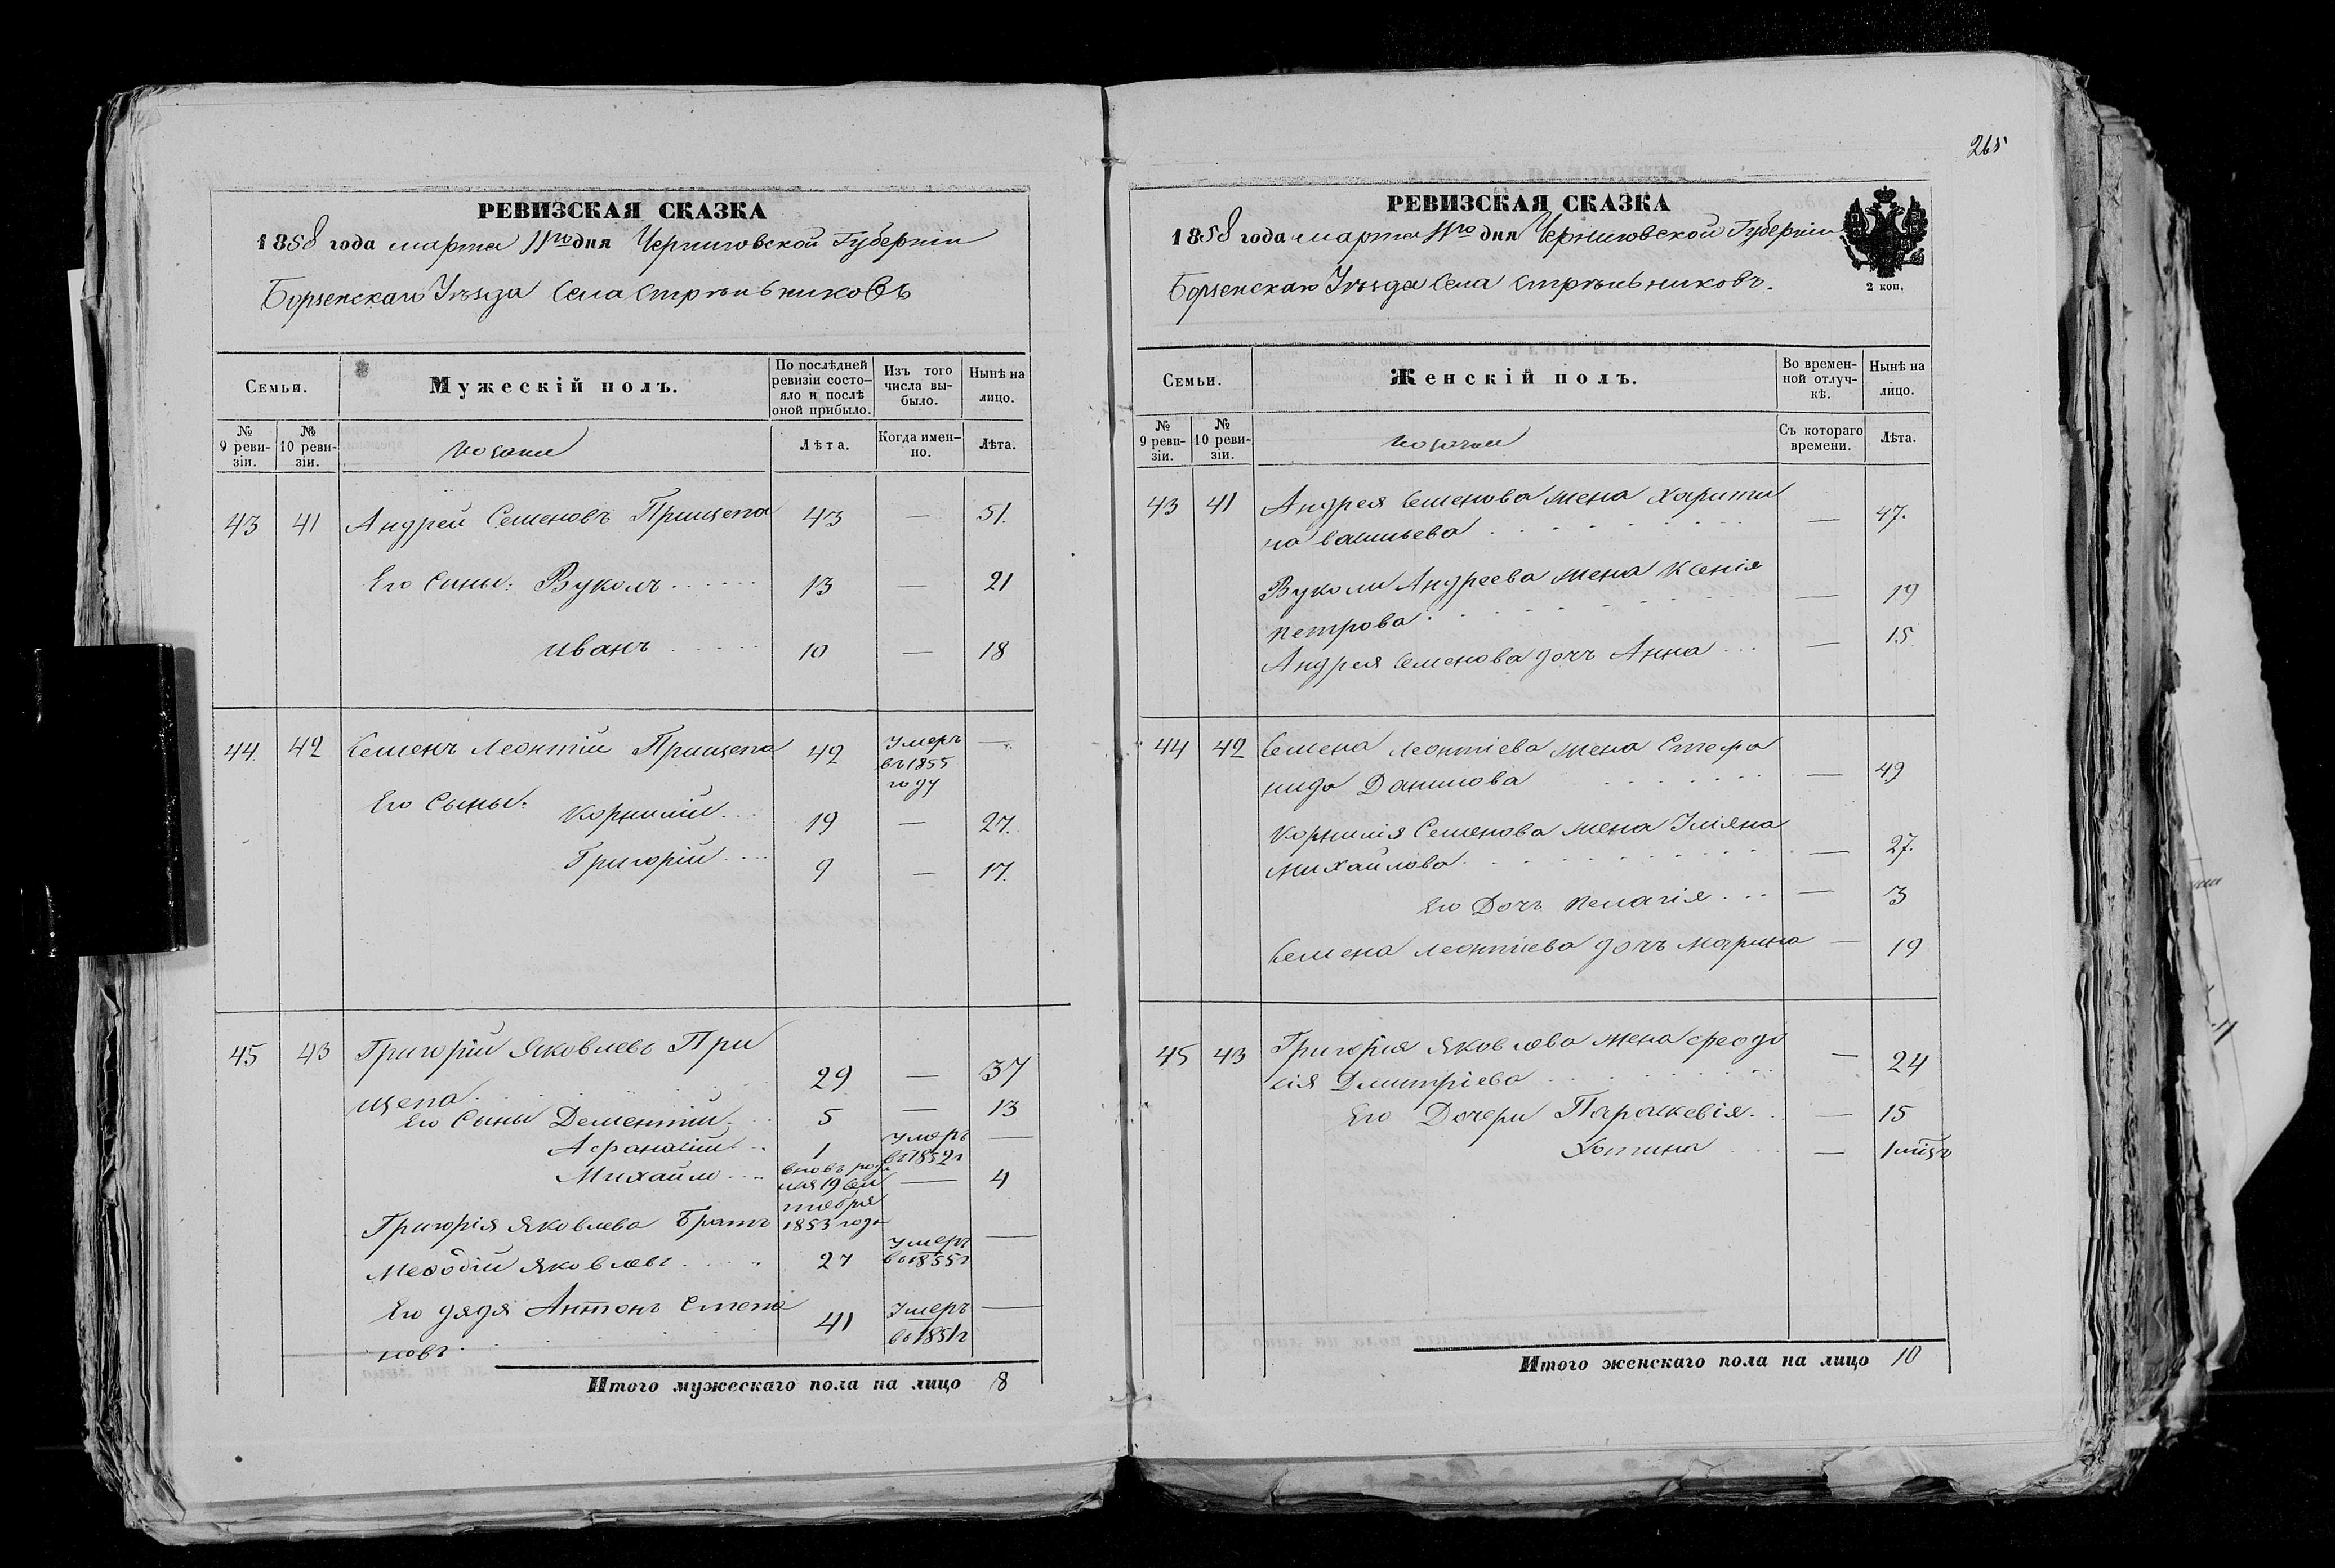 265
РЕВИЗСКАЯ СКАЗКА
1858 года марта 11го дня Черниговской Губерніи
Борзенскаго Уѣзда Села Стрѣльниковъ
Семьи.
Мужескій полъ.
По послѣдней ревизіи состо-
яло и послѣ оной прибыло.
Изъ того числа вы-
было.
Нынѣ на лицо.
№ 9 реви-
зіи.
№ 10 реви-
зіи.
козаки
Лѣта.
Когда имен-
но.
Лѣта.
43 41 Андрей Семеновъ Прищепа 43 — 51.
Его Сыны: Вуколъ 13 — 21
иванъ 10 — 18
44. 42 Семенъ Леонтіи Прищепа 42 Умеръ въ 1855 году —
Его Сыны:
Корнилій 19 — 27.
Григорій 9 — 17.
45 43 Григорій Яковлевъ При
щепа 29 — 37
Его Сыны Дементій 5 — 13
Афанасій 1 Умеръ въ 1852 г —
Михайло вновь роди
лся 19 сен
тября
1853 года — 4
Григорія Яковлева Братъ
Мефодій Яковлевъ 27 Умеръ въ 1855 г —
Его дядя Антонъ Степа
новъ 41 Умеръ въ 1851 г —
Итого мужескаго пола на лицо 8
РЕВИЗСКАЯ СКАЗКА
1858 года марта 11го дня Черниговской Губерніи
Борзенскаго Уѣзда Села Стрѣльниковъ.
2 коп.
Семьи.
Женскій полъ.
Во времен-
ной отлуч-
кѣ.
Нынѣ на лицо.
№ 9 реви-
зіи.
№ 10 реви-
зіи.
козачки
Съ котораго времени.
Лѣта.
43 41 Андрея Семенова жена Харити
на Васильева — 47.
Вукола Андреева жена Ксенія
Петрова — 19
Андрея Семенова дочъ Анна — 15
44 42 Семена Леонтіева жена Стефа
нида Данилова — 49
Корнилія Семенова жена Уліяна
Михайлова — 27.
Его Дочъ Пелагія — 3
Семена Леонтіева дочъ Марина — 19
45 43 Григорія Яковлева жена Феодо
сія Дмитріева — 24
Его Дочери Параскевія — 15
— 1 мѣсц
Итого женскаго пола на лицо 10